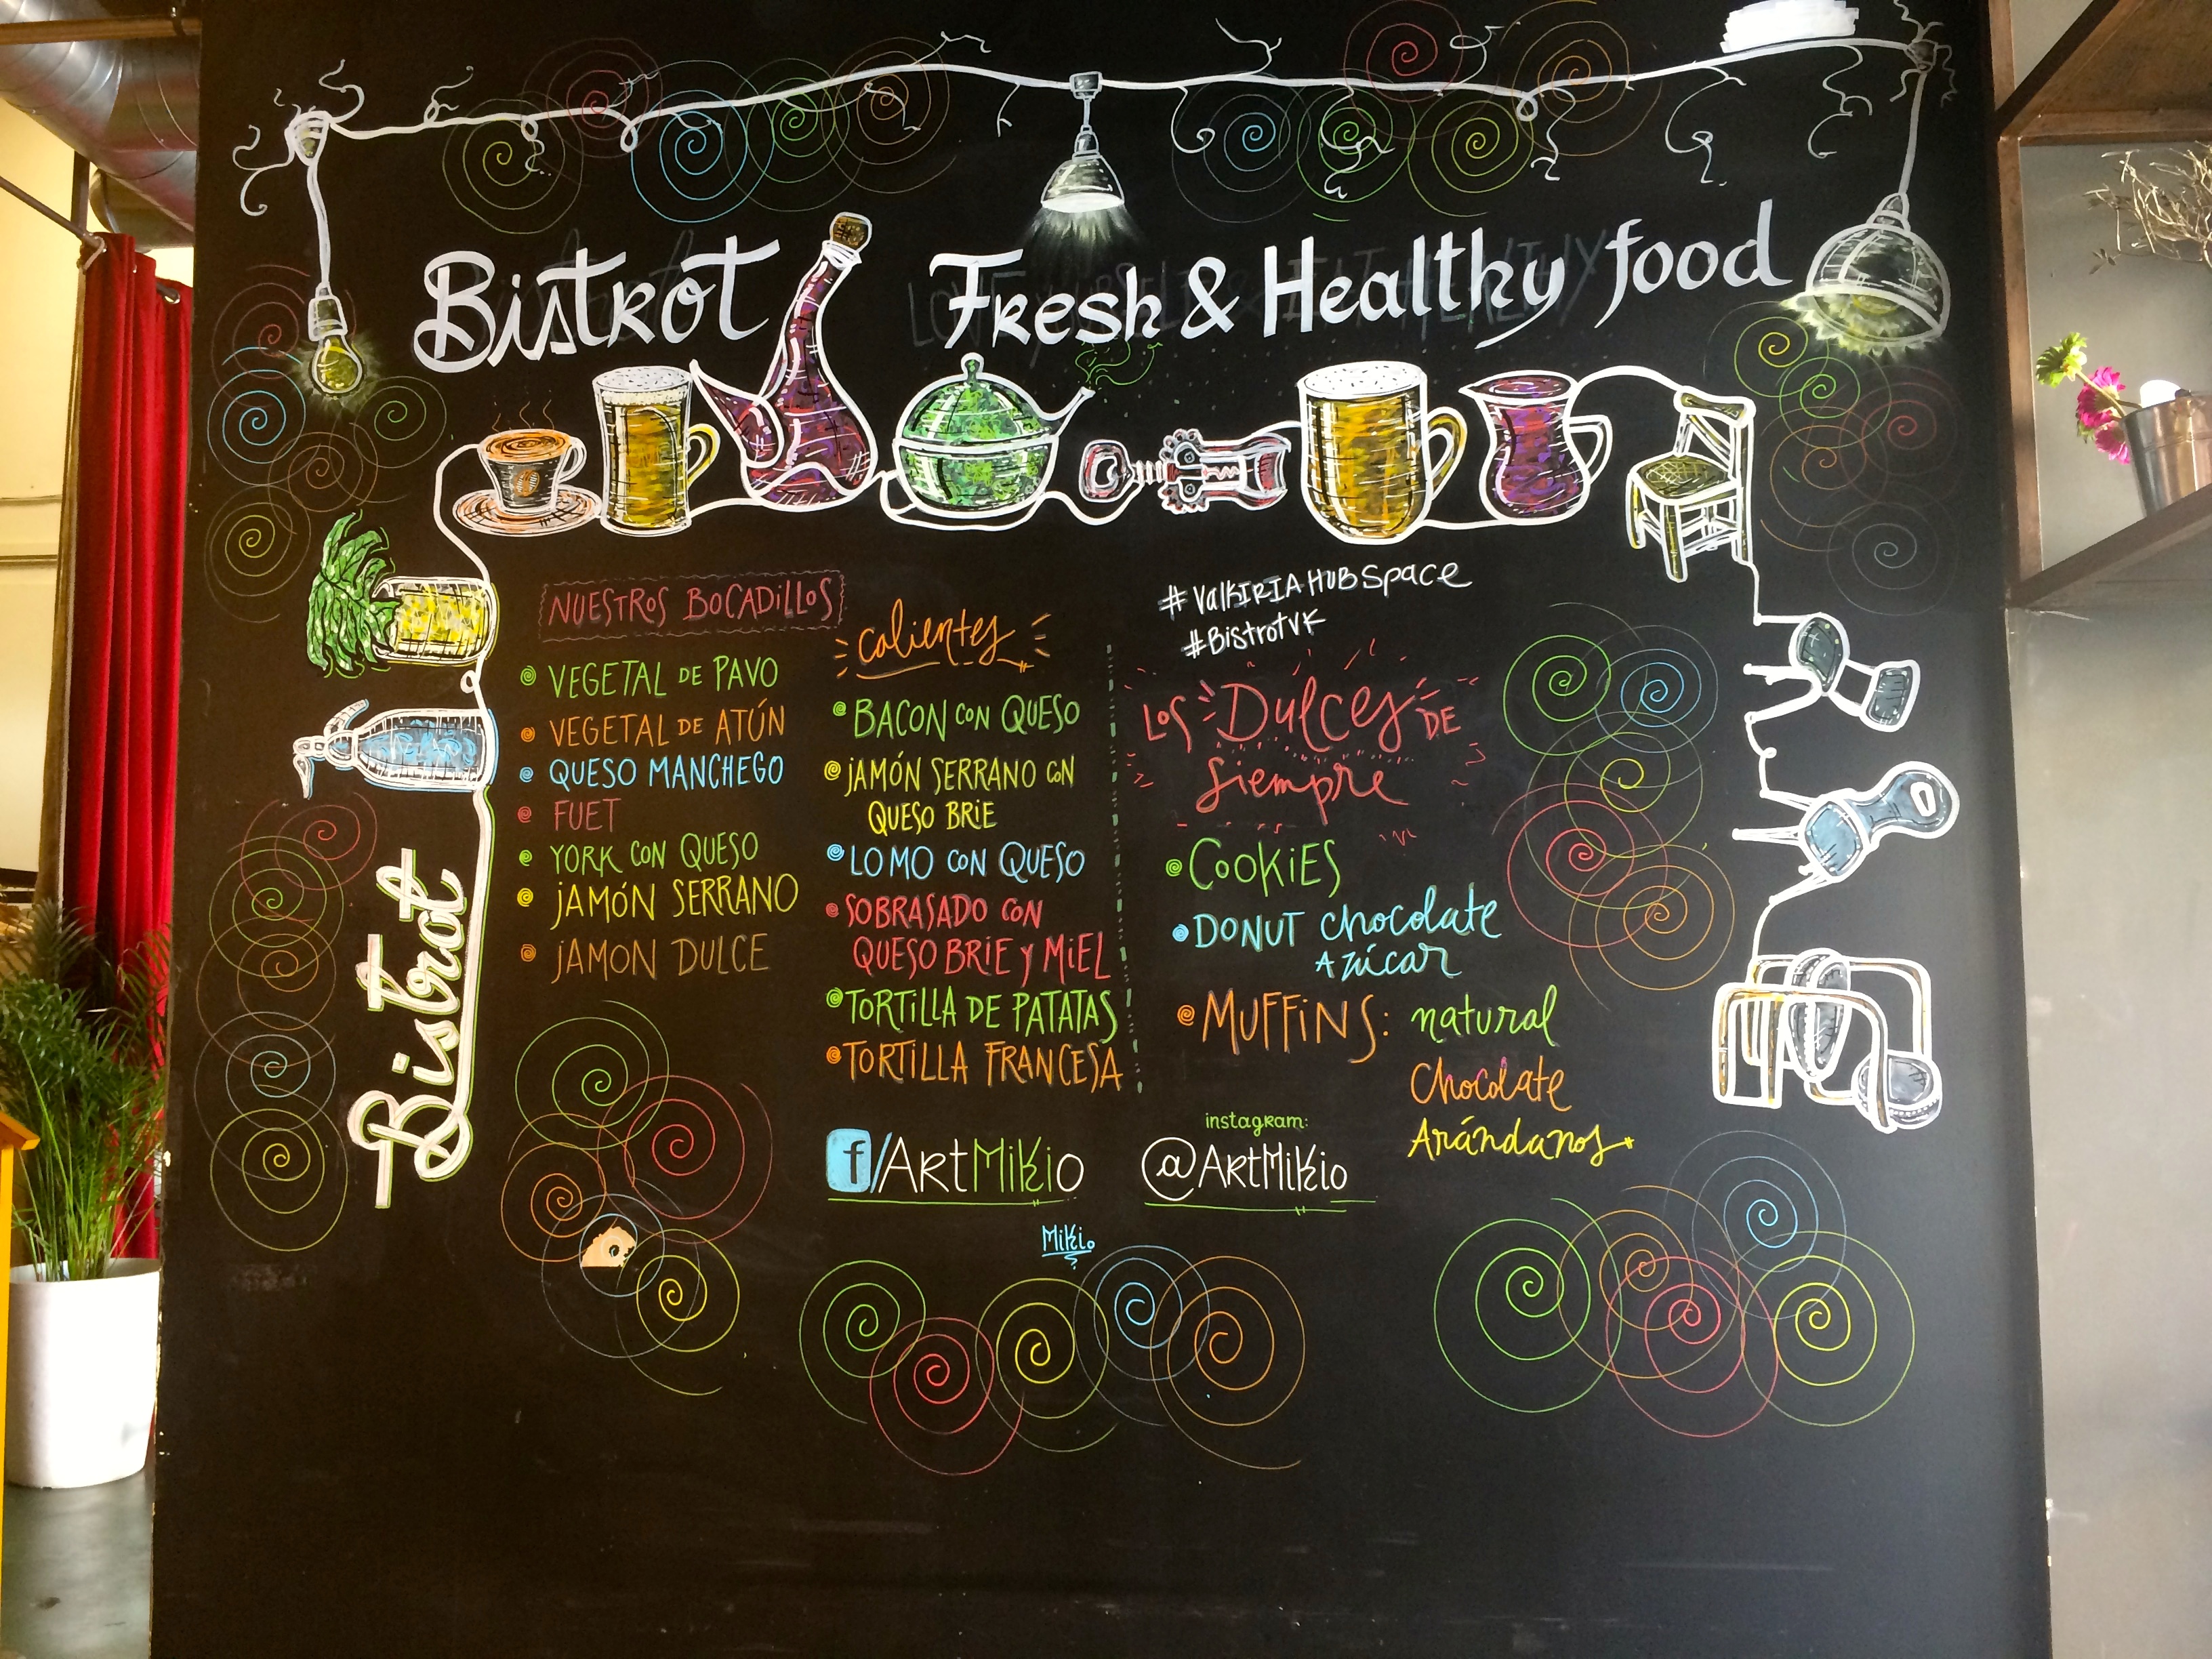 Bistrot Fresh & Healthy food
NUESTROS BOCADILLOS
VEGETAL DE PAVO
VEGETAL DE ATÚN
QUESO MANCHEGO
FUET
YORK CON QUESO
JAMÓN SERRANO
JAMON DULCE
Calientes
BACON CON QUESO
JAMÓN SERRANO CON
QUESO BRIE
LOMO CON QUESO
SOBRASADO CON
QUESO BRIE Y MIEL
TORTILLA DE PATATAS
TORTILLA FRANCESA
#ValKIRIAHUBSpace
#BistrotVK
LOS Dulces DE
Siempre
COOKIES
DONUT chocolate
Azúcar
MUFFINS: natural
Chocolate
Arándanos
Bistrot
f/ArtMikio
instagram:
@ArtMikio
Mikio